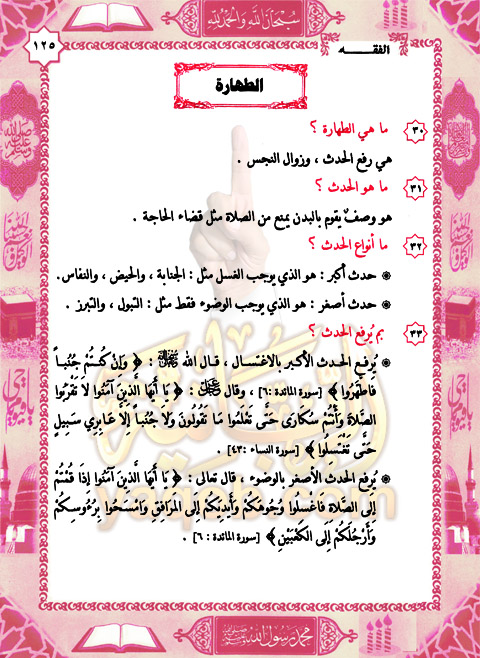 سُبْحَانَ اللَّهِ وَالْحَمْدُ لِلَّهِ
الفقـــه
١٢٥
الطهارة
٣٠ ما هي الطهارة ؟
هي رفع الحدث ، وزوال النجس .
٣١ ما هو الحدث ؟
هو وصفٌ يقوم بالبدن يمنع من الصلاة مثل قضاء الحاجة .
٣٢ ما أنواع الحدث ؟
حدث أكبر : هو الذي يوجب الغسل مثل : الجنابة ، والحيض ، والنفاس.
حدث أصغر : هو الذي يوجب الوضوء فقط مثل : التبول ، والتبرز .
٣٣ بم يُرفع الحدث ؟
يُرفع الحدث الأكبر بالاغتسال ، قال الله : ﴿ وَإِنْ كُنْتُمْ جُنُبًا
فَاطَّهَّرُوا ﴾ [سورة المائدة :٦] ، وقال : ﴿ يَا أَيُّهَا الَّذِينَ آمَنُوا لَا تَقْرَبُوا
الصَّلَاةَ وَأَنْتُمْ سُكَارَى حَتَّى تَعْلَمُوا مَا تَقُولُونَ وَلَا جُنُبًا إِلَّا عَابِرِي سَبِيلٍ
حَتَّى تَغْتَسِلُوا ﴾ [سورة النساء :٤٣].
يُرفع الحدث الأصغر بالوضوء ، قال تعالى : ﴿ يَا أَيُّهَا الَّذِينَ آمَنُوا إِذَا قُمْتُمْ
إِلَى الصَّلَاةِ فَاغْسِلُوا وُجُوهَكُمْ وَأَيْدِيَكُمْ إِلَى الْمَرَافِقِ وَامْسَحُوا بِرُءُوسِكُمْ
وَأَرْجُلَكُمْ إِلَى الْكَعْبَيْنِ ﴾ [سورة المائدة : ٦] .
محمد رسول الله ﷺ